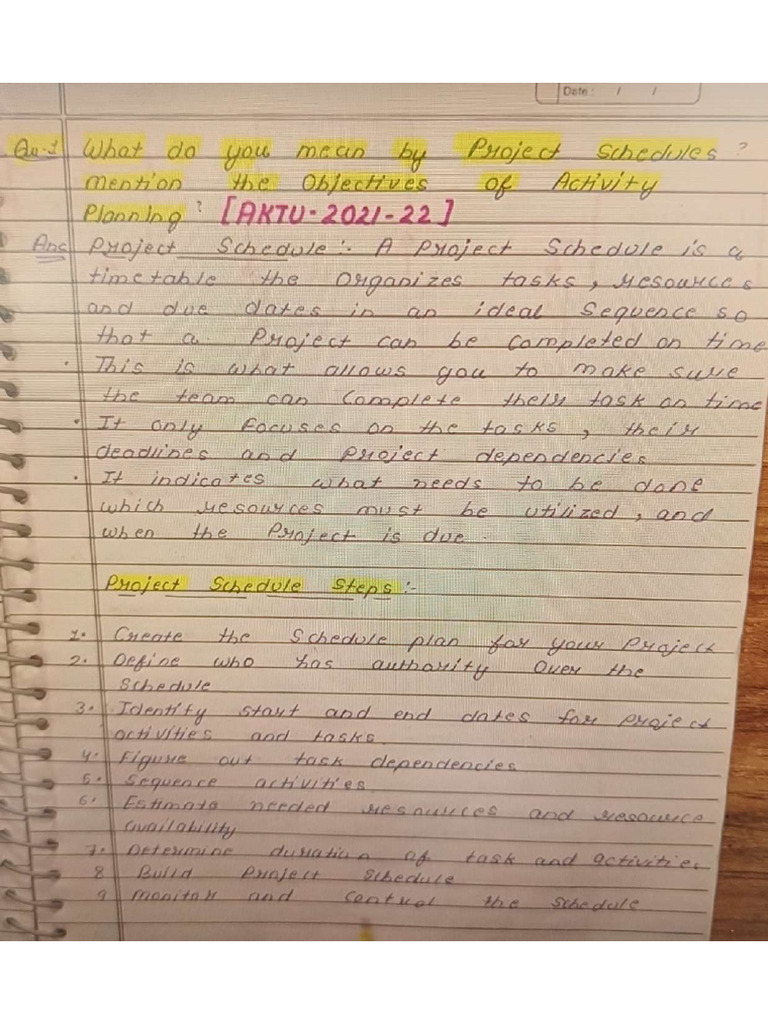 Date: / /
Qu-1 What do you mean by Project Schedules?
mention the Objectives of Activity
Planning? [AKTU-2021-22]
Ans Project Schedule:- A Project Schedule is a
timetable the Organizes tasks, resources
and due dates in an ideal Sequence so
that a Project can be completed on time
• This is what allows you to make sure
the team can Complete their task on time
• It only Focuses on the tasks, their
deadlines and Project dependencies
• It indicates what needs to be done
which resources must be utilized, and
when the Project is due.
Project Schedule Steps:-
1. Create the Schedule plan for your Project
2. Define who has authority Over the
Schedule
3. Identify start and end dates for project
activities and tasks.
4. Figure out task dependencies
5. Sequence activities.
6. Estimate needed resources and resource
availability
7. Determine duration of task and activities
8 Build Project Schedule
9 monitor and Control the Schedule